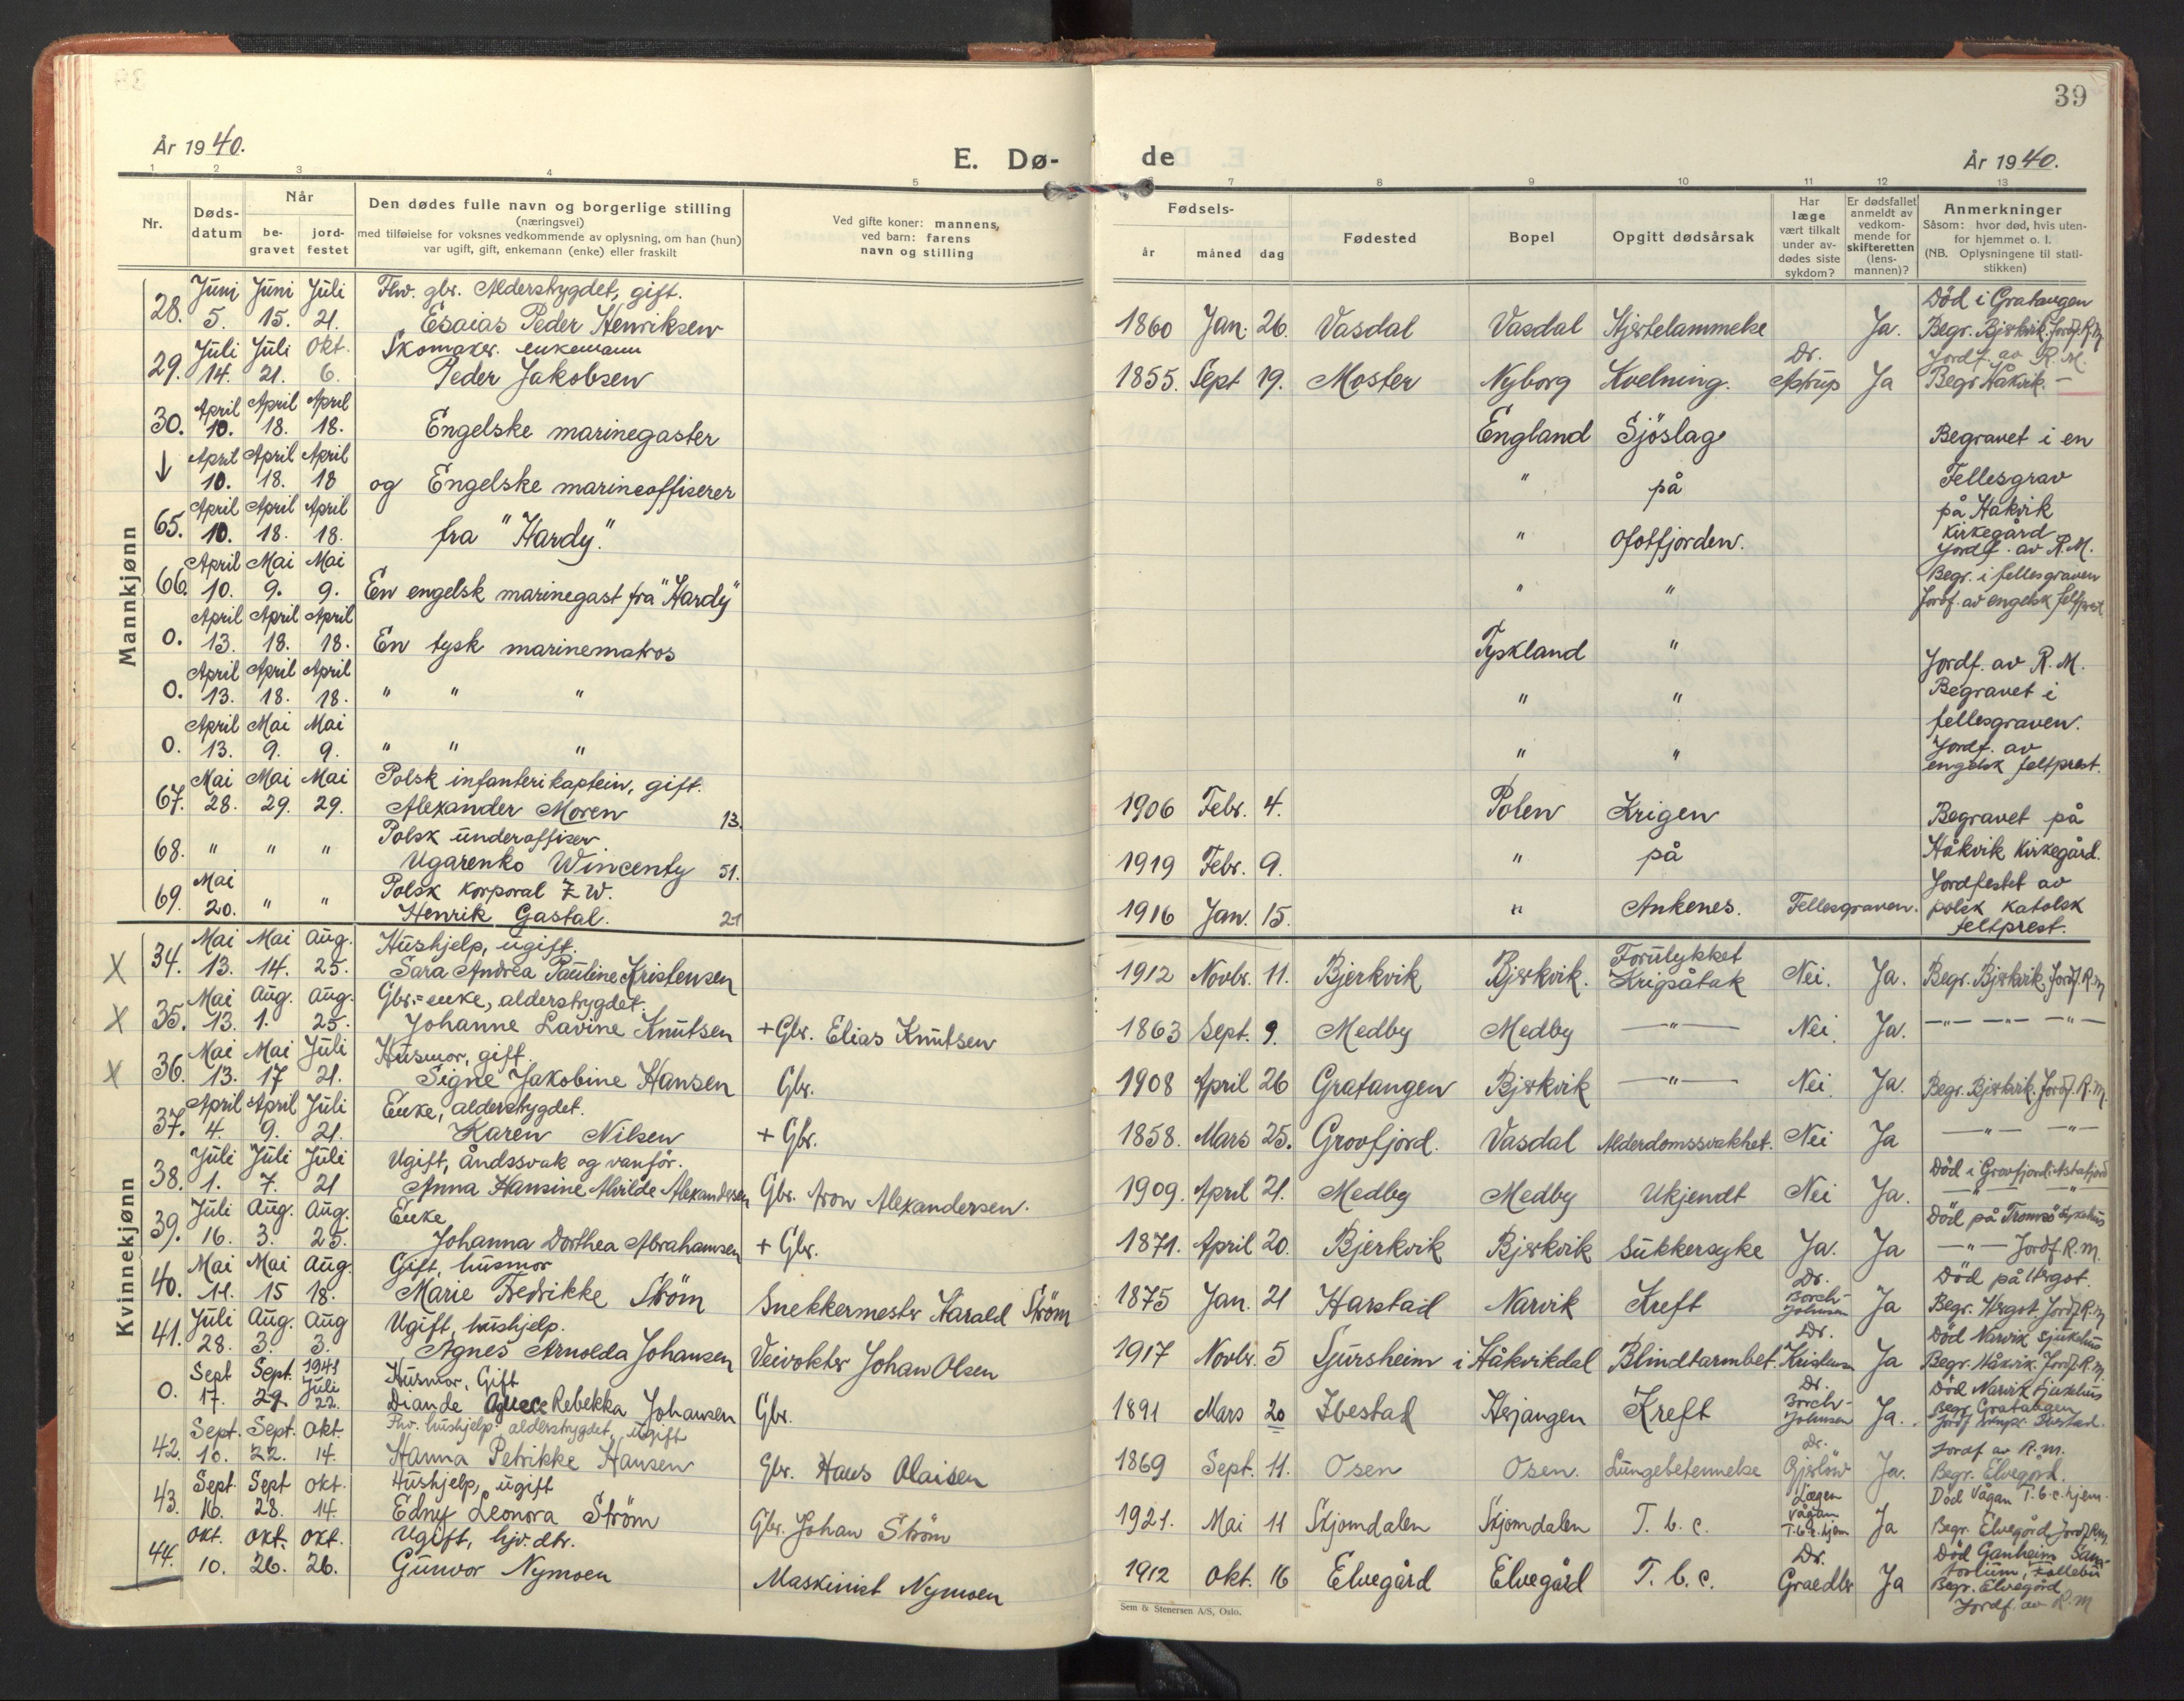 39
År 1940.
E. Dø-
de
År 1940.
1 2 3 4 5 6 7 8 9 10 11 12 13
Nr.
Døds-
datum
Når
be-
gravet
jord-
festet
Den dødes fulle navn og borgerlige stilling
(næringsvei)
med tilføielse for voksnes vedkommende av oplysning, om han (hun)
var ugift, gift, enkemann (enke) eller fraskilt
Ved gifte koner: mannens,
ved barn: farens
navn og stilling
Fødsels-
år måned dag
Fødested
Bopel
Opgitt dødsårsak
Har
læge
vært tilkalt
under av-
dødes siste
sykdom?
Er dødsfallet
anmeldt av
vedkom-
mende for
skifteretten
(lens-
mannen)?
Anmerkninger
Såsom: hvor død, hvis uten-
for hjemmet o. l.
(NB. Oplysningene til stati-
stikken)
Mannkjønn
Juni Juni Juli Fhv. gbr. Alderstrygdet, gift. Død i Gratangen
28. 5. 15. 21. Esaias Peder Henriksen 1860 Jan. 26. Vasdal Vasdal Hjertelammelse Ja. Begr. Bjerkvik. Jordf. R.M.
Juli Juli Okt. Skomaker. enkemann Dr. Jordf. av R. M.
29. 14. 21. 6. Peder Jakobsen 1855. Sept 19. Moster Nyborg Kvelning. Astrup Ja Begr. Håkvik. —
April April April
30. 10. 18. 18. Engelske marinegaster England Sjöslag Begravet i en
April April April
↓ 10. 18. 18 og Engelske marineoffiserer " på Fellesgrav
April April April på Håkvik
65. 10. 18. 18. fra "Hardy". " Ofotfjorden. Kirkegård
Jordf. av R.M.
April Mai Mai Begr. i fellesgraven
66. 10. 9. 9. En engelsk marinegast fra "Hardy" " " Jordf. av engelsk feltprest
April April April
0. 13. 18. 18. En tysk marinematros Tyskland " Jordf. av R. M.
April April April Begravet i
0. 13. 18. 18. " " " " " fellesgraven.
April Mai Mai Jordf. av
0. 13. 9. 9. " " " " " engelsk feltprest.
Mai Mai Mai Polsk infanterikaptein, gift.
67. 28. 29. 29. Alexander Moren 13. 1906 Febr. 4. Polen Krigen Begravet på
Polsk underoffiser.
68. " " " Ugarenko Wincenty 51. 1919 Febr. 9. " på Håkvik Kirkegård.
Mai Polsk korporal Z W. Jordfestet av
69. 20. " " Henrik Gastal. 21 1916 Jan. 15. " Ankenes. Fellesgraven. polsk katolsk
feltprest.
Kvinnekjønn
Mai Mai Aug. Hushjelp, ugift. Forulykket
X 34. 13. 14. 25. Sara Andrea Pauline Kristensen 1912 Novbr. 11. Bjerkvik Bjerkvik. Krigsåtak Nei. Ja. Begr. Bjerkvik, Jordf. R.M
Mai Aug. Aug. Gbr.=enke, alderstrygdet.
X 35. 13. 1. 25. Johanne Lavine Knutsen + Gbr. Elias Knutsen 1863 Sept. 9. Medby Medby —"— Nei. Ja. —"— —"—
Mai Mai Juli Husmor, gift.
X 36. 13. 17 21. Signe Jakobine Hansen Gbr. 1908 April 26 Gratangen Bjerkvik —"— Nei. Ja. Begr. Bjerkvik. Jordf. R.M.
April April Juli Enke, alderstrygdet.
37. 4. 9. 21. Karen Nilsen + Gbr. 1858. Mars 25. Grovfjord. Vasdal Alderdomssvakhet. Nei Ja —"— —"—
Juli Juli Juli Ugift, åndssvak og vanför. Död i Grovfjord i Astafjord
38. 1. 7. 21 Anna Hansine Alvilde Alexandersen Gbr. Aron Alexandersen. 1909. April 21. Medby Medby Ukjendt Nei Ja. —"— —"—
Juli Aug. Aug. Enke Död på Tromsö Sykehus
39. 16. 3. 25. Johanna Dorthea Abrahamsen + Gbr. 1871. April 20. Bjerkvik Bjerkvik Sukkersyke Ja. Ja —"— Jordf. R.M.
Mai Mai Aug. Gift, husmor Dr. Död på Hergot.
40. 11. 15 18. Marie Fredrikke Ström Snekkermester Harald Ström 1875 Jan. 21 Harstad Narvik Kreft Borch-Johnsen Ja Begr. Hergot Jordf. R.M
Juli Aug. Aug Ugift, hushjelp. Dr. Död Narvik Sjukehus
41. 28. 3. 3. Agnes Arnolda Johansen Veivokter Johan Olsen 1917 Novbr. 5 Sjursheim i Håkvikdal Blindtarmbet. Kristensen Ja Begr. Håkvik. Jordf. R.M.
Sept Sept. 1941 Juli Husmor, Gift Dr. Död Narvik Sjukehus
0. 17. 29. 22. Diande Rebekka Johansen Gbr. 1891 Mars 20 Ibestad Herjangen Kreft Borch-Johnsen Ja. Begr. Gratangen
Jordf. Ibestad.
Sept. Sept. Okt. Fhv. hushjelp; alderstrygdet, ugift Dr. Jordf. av R.M.
42. 10. 22. 14. Hanna Petrikke Hansen Gbr. Hans Olaisen 1869 Sept. 11. Osen Osen. Lungebetennelse Gjerlöw Ja. Begr. Elvegård.
Sept. Sept Okt. Hushjelp, ugift Lægen Död Vågan T.b.c. hjem.
43. 16. 28. 14. Edny Leonora Ström Gbr. Johan Ström 1921. Mai 11 Skjomdalen Skjomdalen T. b. c. Vågan T.b.c. hjem Ja Begr. Elvegård, Jordf. R.M.
Okt. Okt. Okt. Ugift, hjv. dtr. Dr. Död Ganheim Sana-
44. 10. 26. 26. Gunvor Nymoen Maskinist Nymoen 1912 Okt. 16 Elvegård Elvegård T. b. c. Ja torium, Follebu
Begr. Elvegård
Jordf. av R.M
Sem & Stenersen A/S, Oslo.